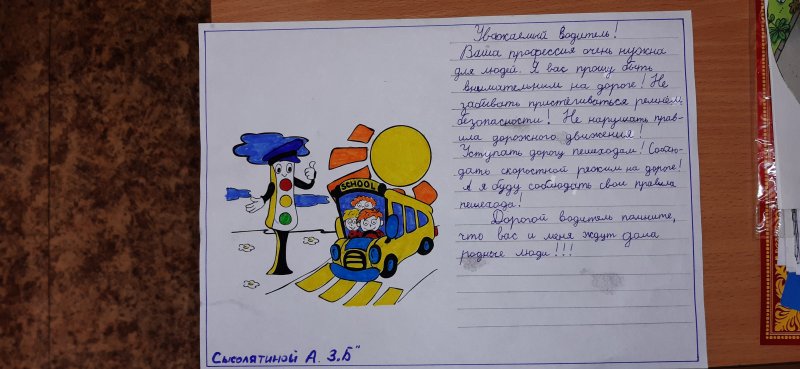 Уважаемый водитель!
Ваша профессия очень нужна
для людей. Я вас прошу быть
внимательним на дороге! Не
забывать пристёгиваться ремнём
безопасности! Не нарушать прав-
ила дорожного движения!
Уступать дорогу пешеходам! Соблю-
дать скоростной режим на дороге!
А я буду соблюдать свои правила
пешехода!
Дорогой водитель помните,
что вас и меня ждут дома
родные люди!!!
SCHOOL
Сысолятиной А. 3„Б"